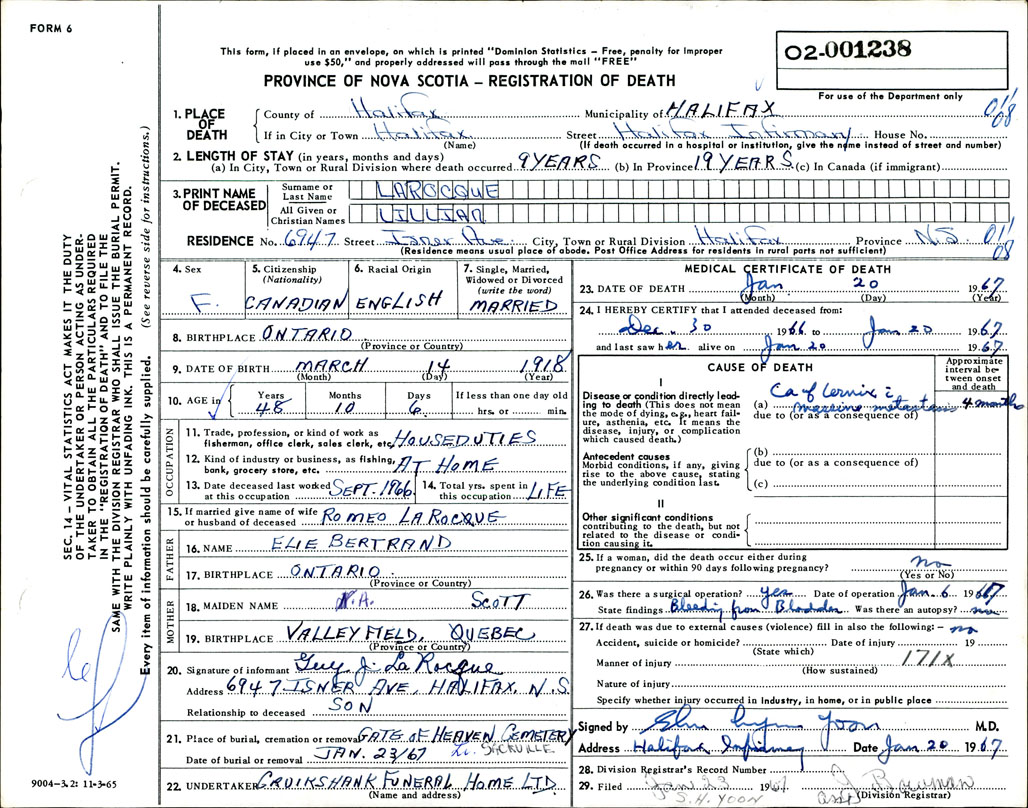 FORM 6
This form, if placed in an envelope, on which is printed "Dominion Statistics – Free, penalty for improper
use $50," and properly addressed will pass through the mail "FREE"
PROVINCE OF NOVA SCOTIA – REGISTRATION OF DEATH
02-001238
For use of the Department only
SEC. 14 – VITAL STATISTICS ACT MAKES IT THE DUTY
OF THE UNDERTAKER OR PERSON ACTING AS UNDER-
TAKER TO OBTAIN ALL THE PARTICULARS REQUIRED
IN THE "REGISTRATION OF DEATH" AND TO FILE THE
SAME WITH THE DIVISION REGISTRAR WHO SHALL ISSUE THE BURIAL PERMIT.
WRITE PLAINLY WITH UNFADING INK. THIS IS A PERMANENT RECORD.
Every item of information should be carefully supplied. (See reverse side for instructions.)
1. PLACE OF DEATH
County of Halifax Municipality of HALIFAX 01/08
If in City or Town Halifax Street Halifax Infirmary House No.
(Name) (If death occurred in a hospital or institution, give the name instead of street and number)
2. LENGTH OF STAY (in years, months and days)
(a) In City, Town or Rural Division where death occurred 9 YEARS (b) In Province 19 YEARS (c) In Canada (if immigrant)
3. PRINT NAME OF DECEASED
Surname or Last Name LAROCQUE
All Given or Christian Names LILLIAN
RESIDENCE No. 6947 Street Isner Ave City, Town or Rural Division Halifax Province N.S 01/08
(Residence means usual place of abode. Post Office Address for residents in rural parts not sufficient)
4. Sex F.
5. Citizenship (Nationality) CANADIAN
6. Racial Origin ENGLISH
7. Single, Married, Widowed or Divorced (write the word) MARRIED
8. BIRTHPLACE ONTARIO
(Province or Country)
9. DATE OF BIRTH MARCH 14 1918
(Month) (Day) (Year)
10. AGE in Years 48 Months 10 Days 6 If less than one day old hrs. or min.
OCCUPATION
11. Trade, profession, or kind of work as
fisherman, office clerk, sales clerk, etc. HOUSEDUTIES
12. Kind of industry or business, as fishing,
bank, grocery store, etc. AT HOME
13. Date deceased last worked at this occupation SEPT. 1966
14. Total yrs. spent in this occupation LIFE
15. If married give name of wife
or husband of deceased ROMEO LAROCQUE
FATHER
16. NAME ELIE BERTRAND
17. BIRTHPLACE ONTARIO
(Province or Country)
MOTHER
18. MAIDEN NAME SCOTT
19. BIRTHPLACE VALLEYFIELD, QUEBEC
(Province or Country)
20. Signature of informant Guy J. LaRocque
Address 6947 ISNER AVE, HALIFAX, N.S.
Relationship to deceased SON
21. Place of burial, cremation or removal GATE OF HEAVEN CEMETERY
Date of burial or removal JAN. 23/67 SACKVILLE
22. UNDERTAKER CRUIKSHANK FUNERAL HOME LTD.
(Name and address)
9004–3.2: 11-3-65
MEDICAL CERTIFICATE OF DEATH
23. DATE OF DEATH Jan 20 1967
(Month) (Day) (Year)
24. I HEREBY CERTIFY that I attended deceased from:
Dec. 30 1966 to Jan 20 1967
and last saw her alive on Jan 20 1967
CAUSE OF DEATH
Approximate interval between onset and death
I
Disease or condition directly lead-
ing to death (This does not mean
the mode of dying, e.g., heart fail-
ure, asthenia, etc. It means the
disease, injury, or complication
which caused death.)
(a) Ca of Cervix c̄ massive metastasis 4 months
due to (or as a consequence of)
Antecedent causes
Morbid conditions, if any, giving
rise to the above cause, stating
the underlying condition last.
(b)
due to (or as a consequence of)
(c)
II
Other significant conditions
contributing to the death, but not
related to the disease or condi-
tion causing it.
25. If a woman, did the death occur either during
pregnancy or within 90 days following pregnancy? no
(Yes or No)
26. Was there a surgical operation? yes Date of operation Jan. 6 1967
State findings Bleeding from Bladder Was there an autopsy? no
27. If death was due to external causes (violence) fill in also the following: – no
Accident, suicide or homicide? Date of injury 19
(State which)
Manner of injury 171X
(How sustained)
Nature of injury
Specify whether injury occurred in Industry, in home, or in public place
Signed by Yoon M.D.
Address Halifax Infirmary Date Jan 20 1967
28. Division Registrar's Record Number
29. Filed Jan 23 1967 Bowman
S.H. YOON (Division Registrar)